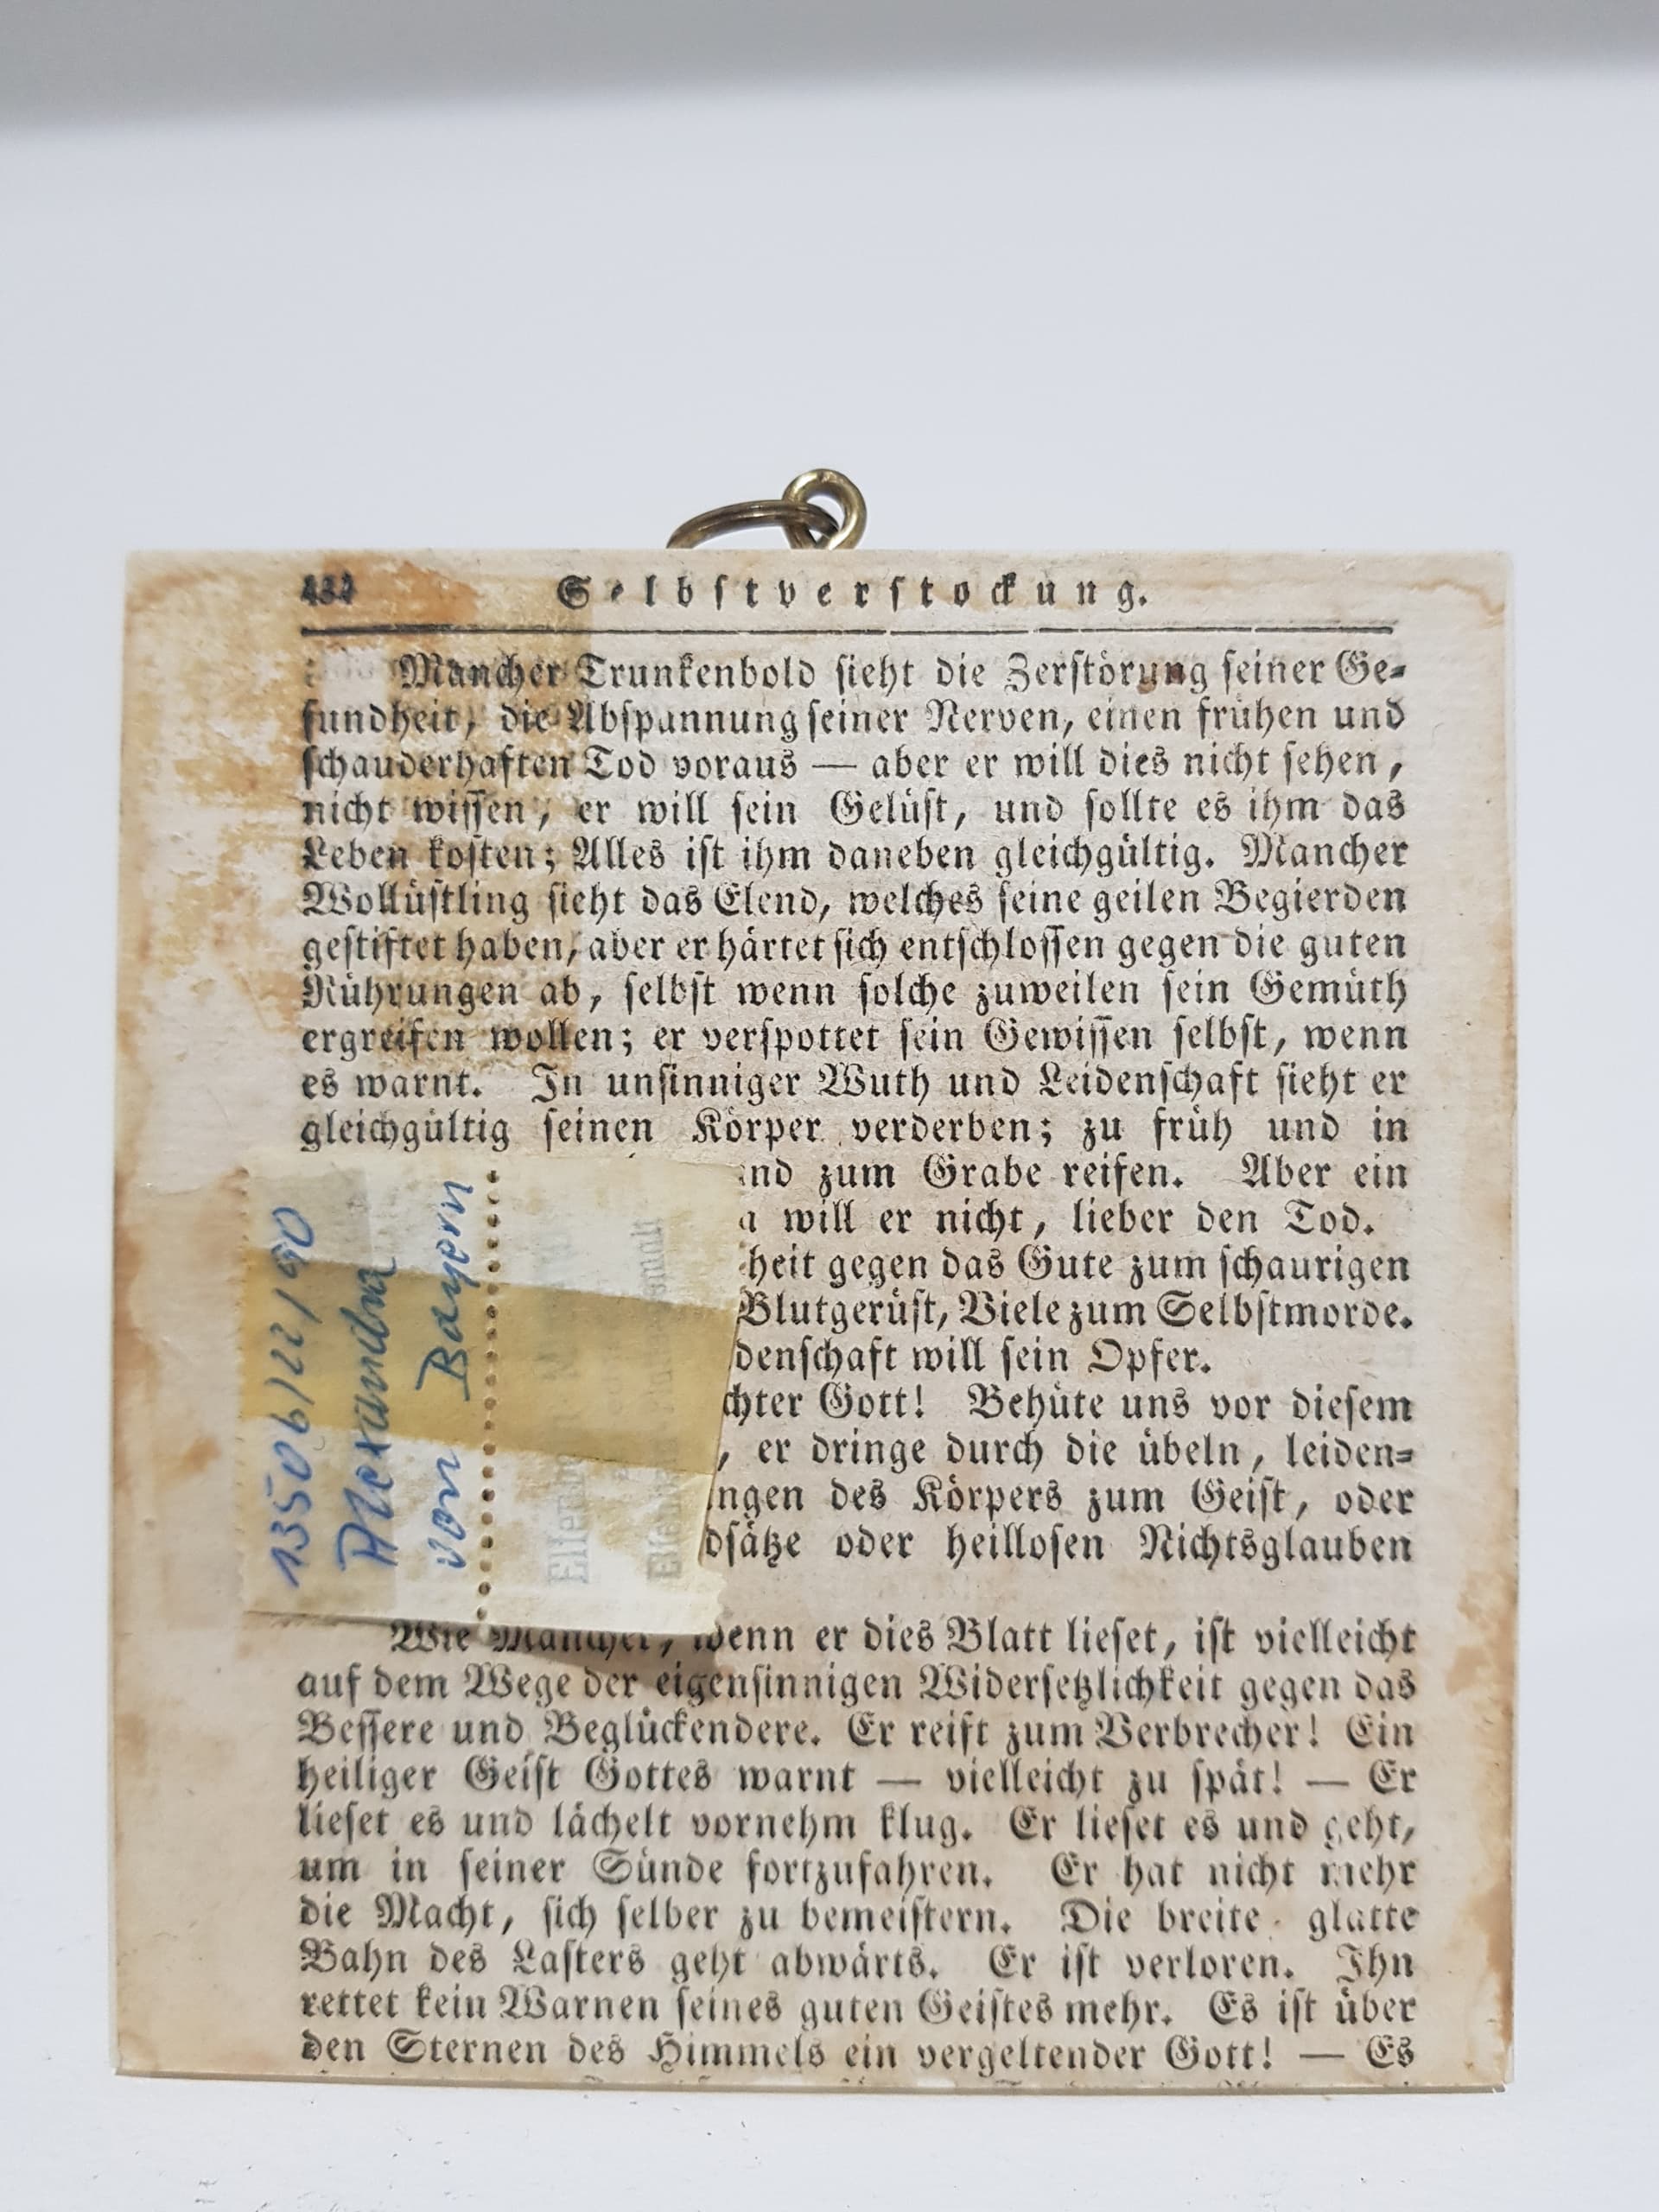 Selbstverstockung.
Mancher Trunkenbold sieht die Zerstörung seiner Ge-
sundheit, die Abspannung seiner Nerven, einen frühen und
schauderhaften Tod voraus — aber er will dies nicht sehen,
nicht wissen, er will sein Gelüst, und sollte es ihm das
Leben kosten; Alles ist ihm daneben gleichgültig. Mancher
Wollüstling sieht das Elend, welches seine geilen Begierden
gestiftet haben, aber er härtet sich entschlossen gegen die guten
Rührungen ab, selbst wenn solche zuweilen sein Gemüth
ergreifen wollen; er verspottet sein Gewissen selbst, wenn
es warnt. In unsinniger Wuth und Leidenschaft sieht er
gleichgültig seinen Körper verderben; zu früh und in
nd zum Grabe reifen. Aber ein
will er nicht, lieber den Tod.
heit gegen das Gute zum schaurigen
Blutgerüst, Viele zum Selbstmorde.
denschaft will sein Opfer.
chter Gott! Behüte uns vor diesem
, er dringe durch die übeln, leiden-
ngen des Körpers zum Geist, oder
dsätze oder heillosen Nichtsglauben
Wie Mancher, wenn er dies Blatt lieset, ist vielleicht
auf dem Wege der eigensinnigen Widersetzlichkeit gegen das
Bessere und Beglückendere. Er reift zum Verbrecher! Ein
heiliger Geist Gottes warnt — vielleicht zu spät! — Er
lieset es und lächelt vornehm klug. Er lieset es und geht,
um in seiner Sünde fortzufahren. Er hat nicht mehr
die Macht, sich selber zu bemeistern. Die breite glatte
Bahn des Lasters geht abwärts. Er ist verloren. Ihn
rettet kein Warnen seines guten Geistes mehr. Es ist über
den Sternen des Himmels ein vergeltender Gott! — Es
13506/22/90
Alexandra
von Bayern